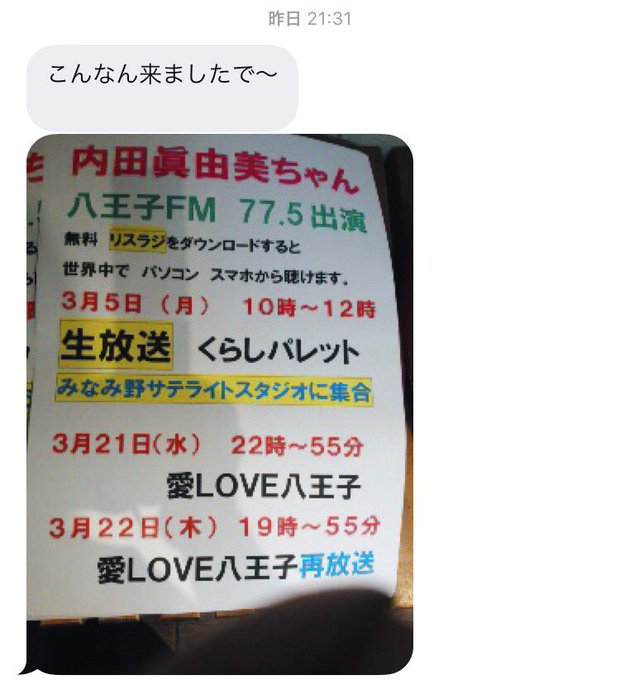 昨日 21:31
こんなん来ましたで〜
内田眞由美ちゃん
八王子FM 77.5出演
無料 リスラジをダウンロードすると
世界中で パソコン スマホから聴けます。
3月5日（月） 10時〜12時
生放送 くらしパレット
みなみ野サテライトスタジオに集合
3月21日（水） 22時〜55分
愛LOVE八王子
3月22日（木） 19時〜55分
愛LOVE八王子再放送